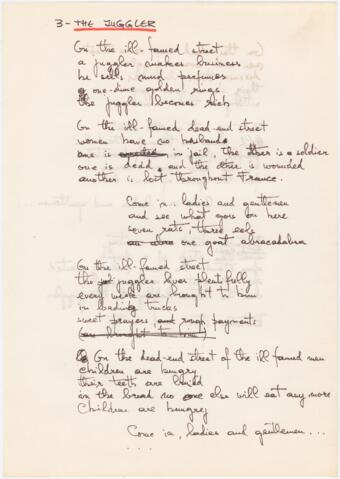 3 - THE JUGGLER
On the ill-famed street
a juggler makes business
he sells mud perfumes
one-dime golden rings
the juggler becomes rich
On the ill-famed dead-end street
women have no husbands
one is in jail, the other is a soldier
one is dead, and the other is wounded
another is lost throughout France.
Come in, ladies and gentlemen
and see what goes on here
seven rats, three eels
one goat abracadabra
On the ill-famed street
the juggler lives plentifully
every week are brought to him
in loading trucks
sweet prayers, and rough payments
(are brought to him)
On the dead-end street of the ill famed men
children are hungry
their teeth are
in the bread no one else will eat any more
Children are hungry
Come in, ladies and gentlemen...
....